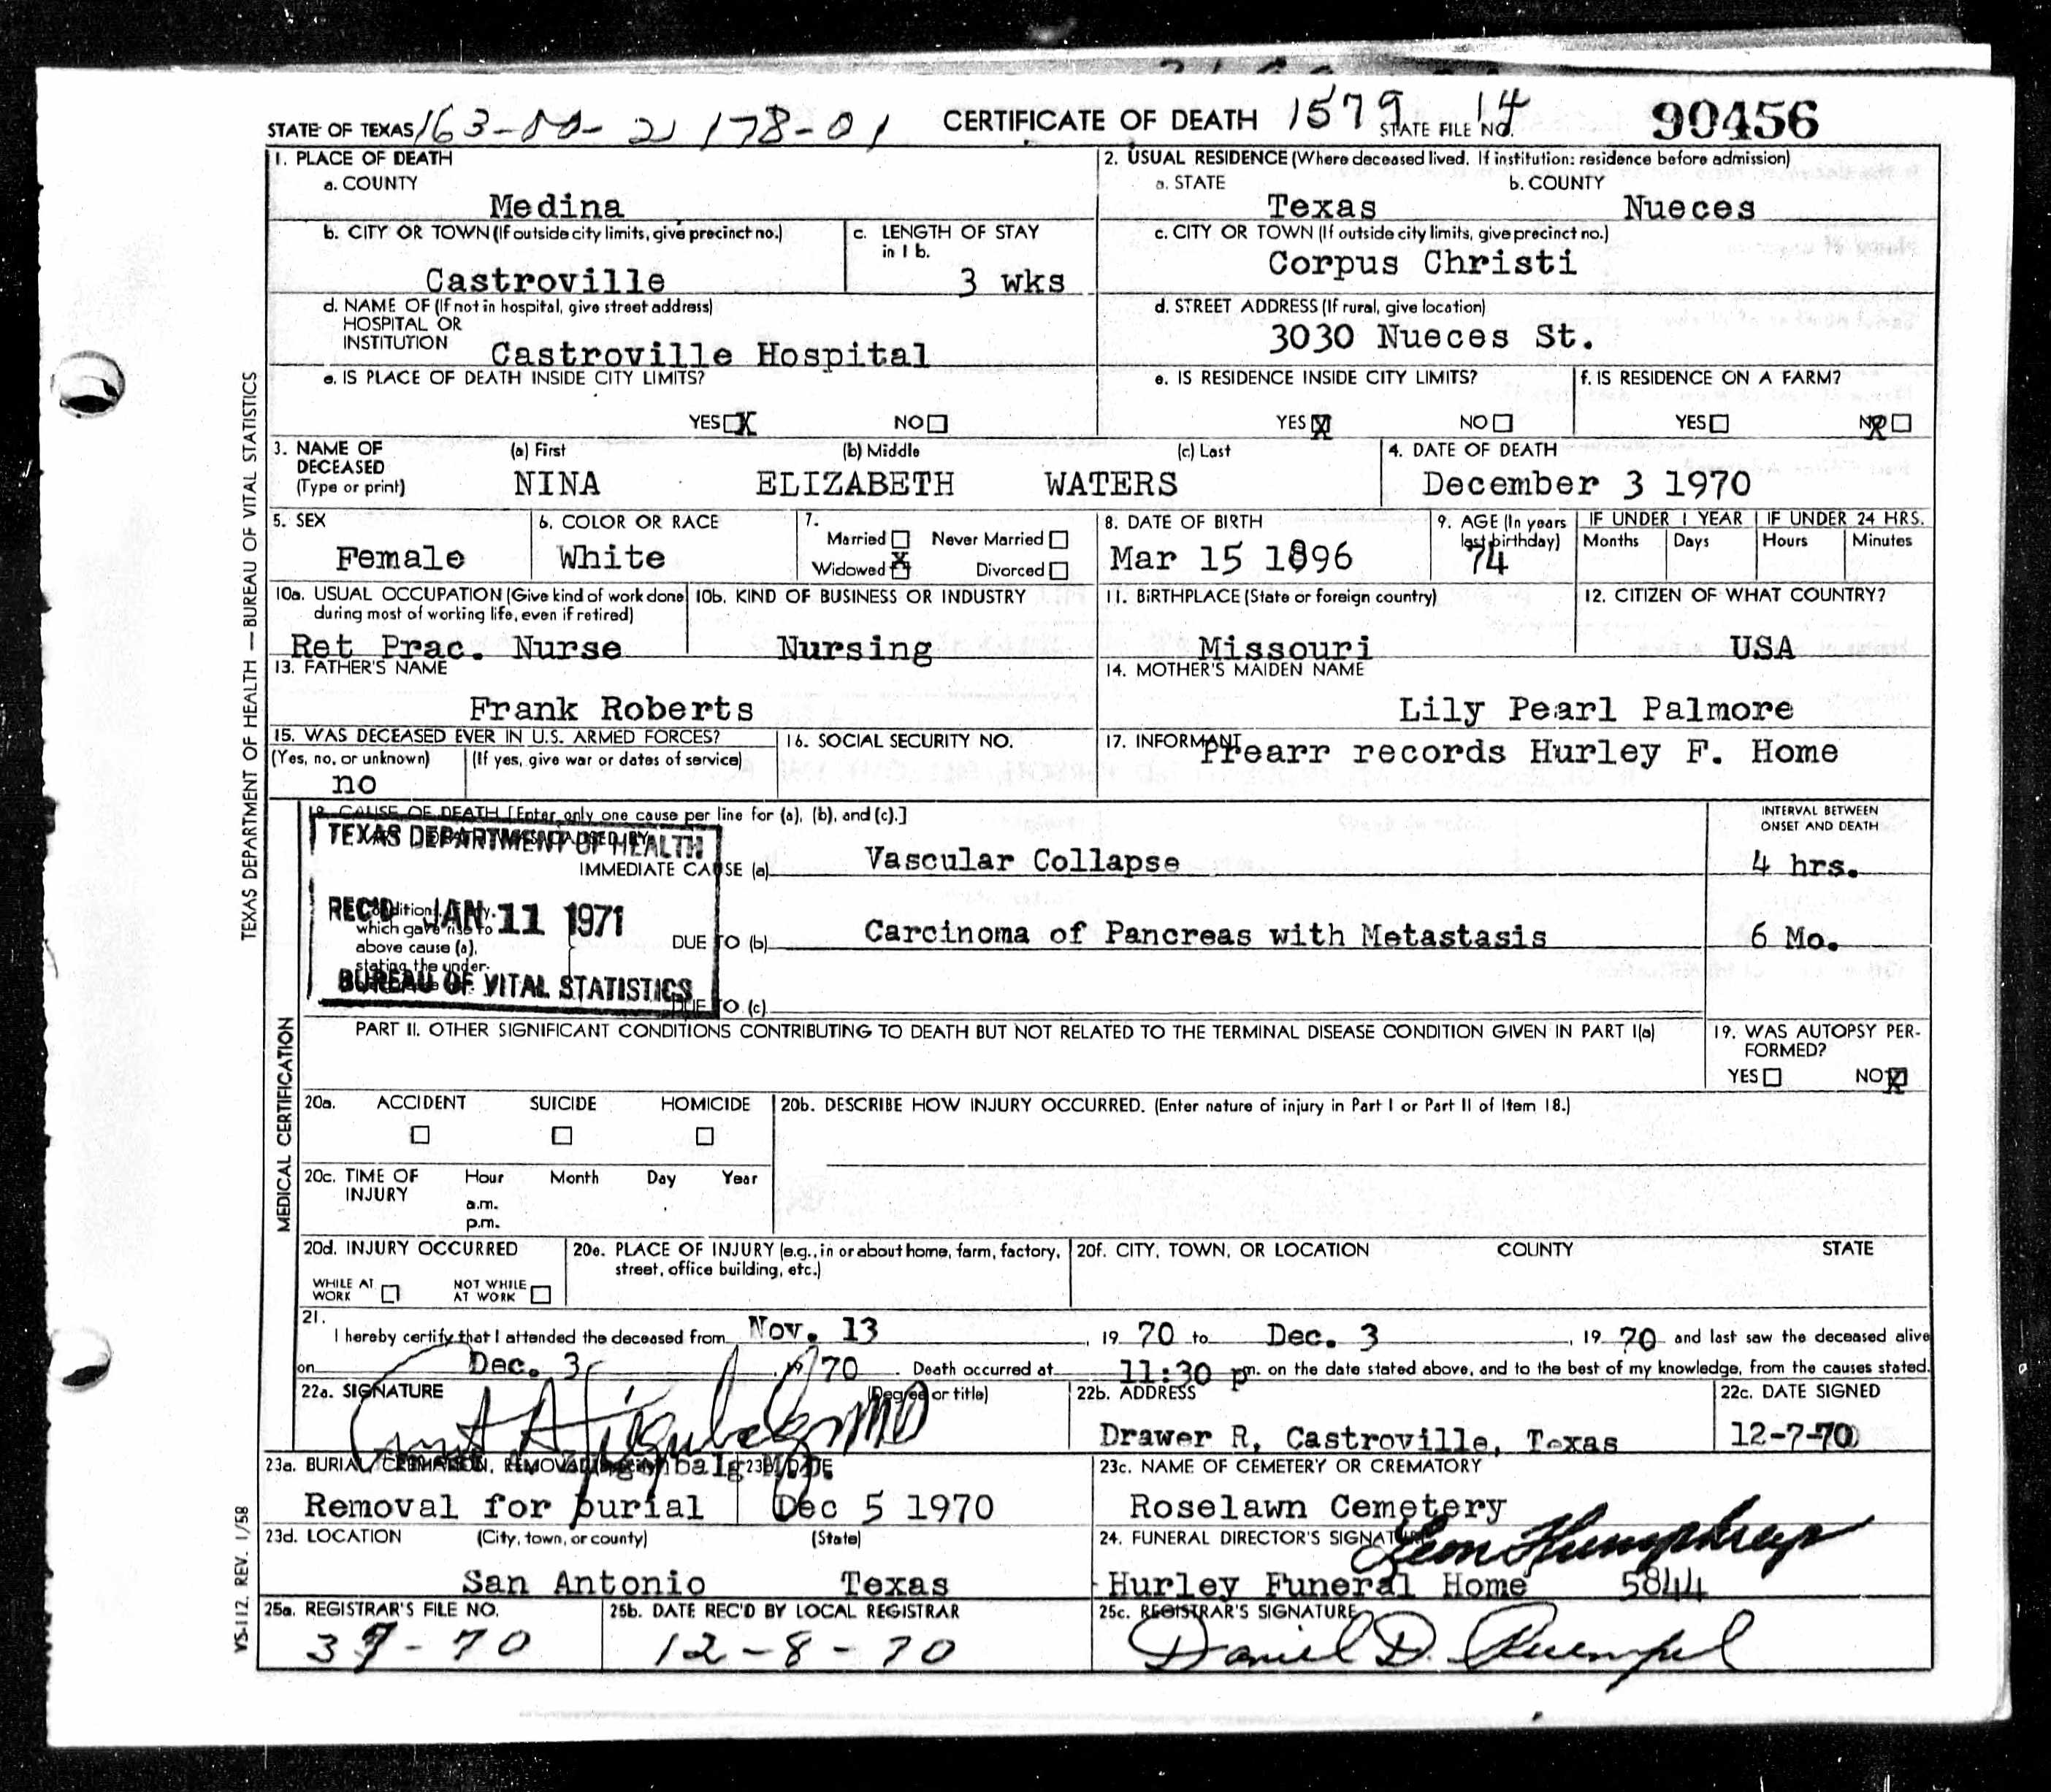 STATE OF TEXAS 163-00-21178-01 CERTIFICATE OF DEATH 1579 14 STATE FILE NO. 90456
1. PLACE OF DEATH
a. COUNTY
Medina
2. USUAL RESIDENCE (Where deceased lived. If institution: residence before admission)
a. STATE b. COUNTY
Texas Nueces
b. CITY OR TOWN (If outside city limits, give precinct no.)
Castroville
c. LENGTH OF STAY
in 1 b.
3 wks
c. CITY OR TOWN (If outside city limits, give precinct no.)
Corpus Christi
d. NAME OF (If not in hospital, give street address)
HOSPITAL OR
INSTITUTION Castroville Hospital
d. STREET ADDRESS (If rural, give location)
3030 Nueces St.
e. IS PLACE OF DEATH INSIDE CITY LIMITS?
YES X NO
e. IS RESIDENCE INSIDE CITY LIMITS?
YES X NO
f. IS RESIDENCE ON A FARM?
YES NO X
3. NAME OF (a) First (b) Middle (c) Last
DECEASED
(Type or print) NINA ELIZABETH WATERS
4. DATE OF DEATH
December 3 1970
5. SEX
Female
6. COLOR OR RACE
White
7.
Married Never Married
Widowed X Divorced
8. DATE OF BIRTH
Mar 15 1896
9. AGE (In years
last birthday)
74
IF UNDER 1 YEAR IF UNDER 24 HRS.
Months Days Hours Minutes
10a. USUAL OCCUPATION (Give kind of work done
during most of working life, even if retired)
Ret Prac. Nurse
10b. KIND OF BUSINESS OR INDUSTRY
Nursing
11. BIRTHPLACE (State or foreign country)
Missouri
12. CITIZEN OF WHAT COUNTRY?
USA
13. FATHER'S NAME
Frank Roberts
14. MOTHER'S MAIDEN NAME
Lily Pearl Palmore
15. WAS DECEASED EVER IN U.S. ARMED FORCES?
(Yes, no, or unknown) (If yes, give war or dates of service)
no
16. SOCIAL SECURITY NO.
17. INFORMANT
Prearr records Hurley F. Home
18. CAUSE OF DEATH [Enter only one cause per line for (a), (b), and (c).]
INTERVAL BETWEEN
ONSET AND DEATH
TEXAS DEPARTMENT OF HEALTH
IMMEDIATE CAUSE (a) Vascular Collapse 4 hrs.
REC'D JAN 11 1971
which gave rise to
above cause (a),
stating the under-
DUE TO (b) Carcinoma of Pancreas with Metastasis 6 Mo.
BUREAU OF VITAL STATISTICS
DUE TO (c)
PART II. OTHER SIGNIFICANT CONDITIONS CONTRIBUTING TO DEATH BUT NOT RELATED TO THE TERMINAL DISEASE CONDITION GIVEN IN PART I(a)
19. WAS AUTOPSY PER-
FORMED?
YES NO X
20a. ACCIDENT SUICIDE HOMICIDE
20b. DESCRIBE HOW INJURY OCCURRED. (Enter nature of injury in Part I or Part II of Item 18.)
20c. TIME OF Hour Month Day Year
INJURY a.m.
p.m.
20d. INJURY OCCURRED
WHILE AT NOT WHILE
WORK AT WORK
20e. PLACE OF INJURY (e.g., in or about home, farm, factory,
street, office building, etc.)
20f. CITY, TOWN, OR LOCATION COUNTY STATE
21.
I hereby certify that I attended the deceased from Nov. 13, 19 70 to Dec. 3, 19 70 and last saw the deceased alive
on Dec. 3, 19 70. Death occurred at 11:30 pm. on the date stated above, and to the best of my knowledge, from the causes stated.
22a. SIGNATURE (Degree or title)
MD
22b. ADDRESS
Drawer R, Castroville, Texas
22c. DATE SIGNED
12-7-70
23a. BURIAL, CREMATION, REMOVAL
Removal for burial
23b. DATE
Dec 5 1970
23c. NAME OF CEMETERY OR CREMATORY
Roselawn Cemetery
23d. LOCATION (City, town, or county) (State)
San Antonio Texas
24. FUNERAL DIRECTOR'S SIGNATURE
Leon Humphreys
Hurley Funeral Home 5844
25a. REGISTRAR'S FILE NO.
39-70
25b. DATE REC'D BY LOCAL REGISTRAR
12-8-70
25c. REGISTRAR'S SIGNATURE
Daniel D.
TEXAS DEPARTMENT OF HEALTH — BUREAU OF VITAL STATISTICS
MEDICAL CERTIFICATION
VS-112, REV. 1/58